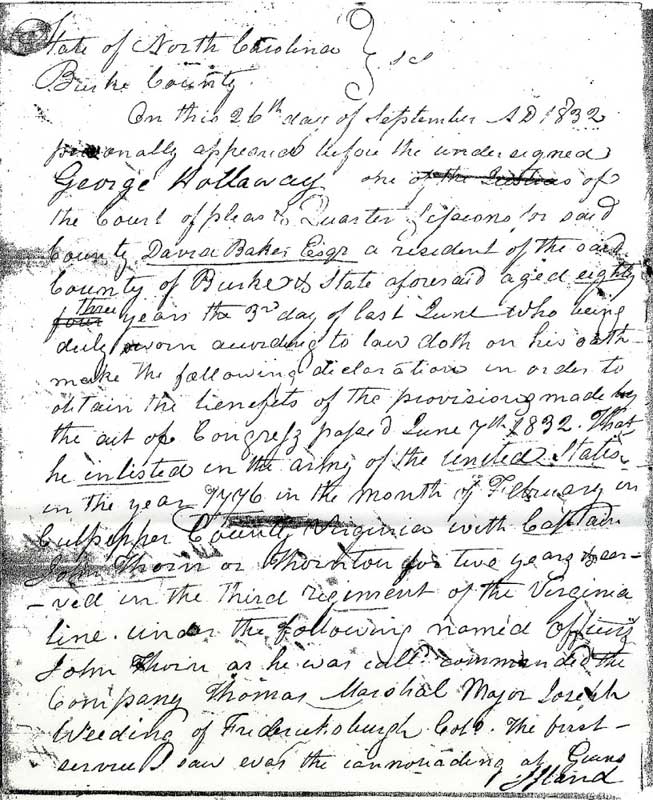 State of North Carolina
Burke County.
On this 26th day of September AD 1832
personally appeared before the undersigned
George Hollaway one of the Justices of
the Court of pleas & Quarter Sessions for said
County David Baker Esqr a resident of the said
County of Burke & State aforesaid aged eighty
four three years the 3rd day of last June who being
duly sworn according to law doth on his oath
make the following declaration in order to
obtain the benefits of the provisions made by
the act of Congress passed June 7th 1832. That
he inlisted in the army of the united States
in the year 1776 in the month of February in
Culpepper County Virginia with Captain
John Thorn or Thornton for two years & ser-
-ved in the third regiment of the Virginia
line. under the following named Officers
John Thorn as he was calld commanded the
Company Thomas Marshal Major Joseph
Weeding of Fredericksburgh Colo. The first
service I saw was the cannonading at Guns
Island